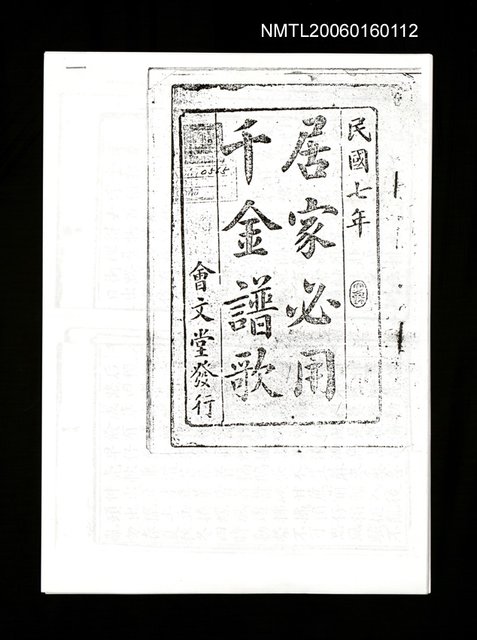 NMTL20060160112
民國七年
居家必用
千金譜歌
會文堂發行